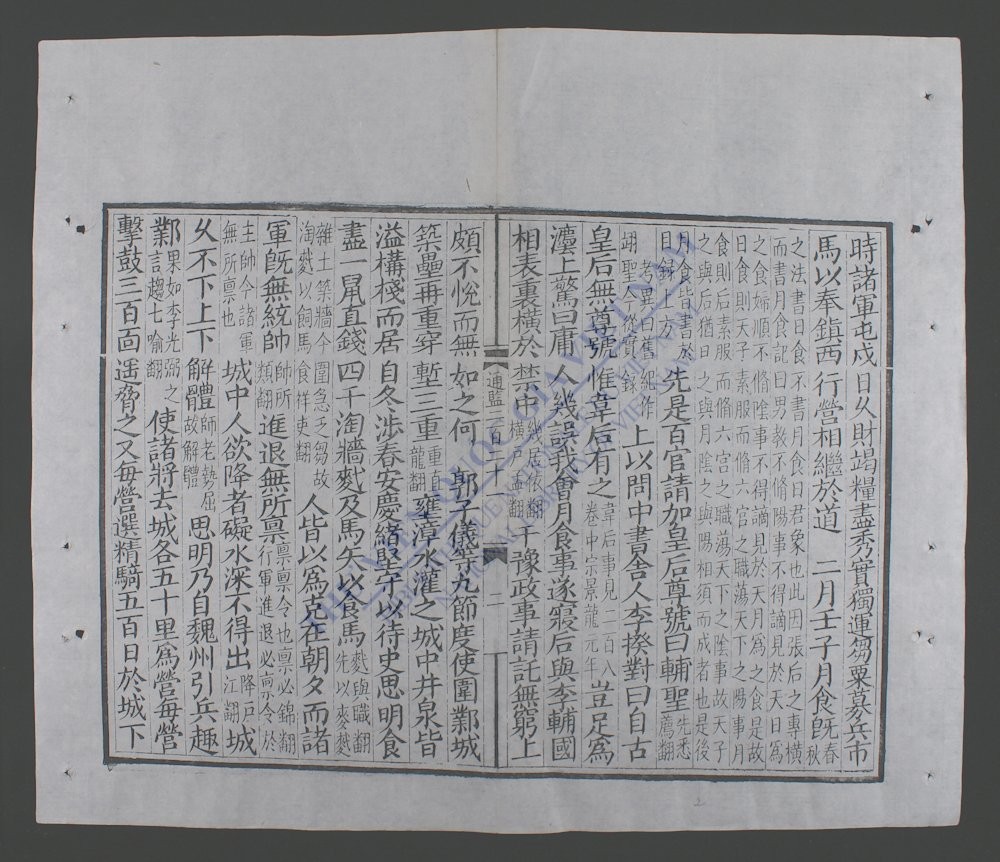 時諸軍屯戍日久財竭糧盡秀實獨運芻粟募兵市
馬以奉鎮西行營相繼於道 二月壬子月食旣春秋
之法書日食不書月食日君象也此因張后之專橫
而書月食記曰男教不脩陽事不得謫見於天日爲
之食婦順不脩陰事不得謫見於天月爲之食是故
日食則天子素服而脩六官之職蕩天下之陽事月
食則后素服而脩六宮之職蕩天下之陰事故天子
之與后猶日之與月陰之與陽相須而成者也是後
月食皆書於目錄下方先是百官請加皇后尊號曰輔聖先悉薦翻
考異曰舊紀作翊聖今從實錄上以問中書舍人李揆對曰自古
皇后無尊號惟韋后有之韋后事見二百八卷中宗景龍元年豈足爲
灋上驚曰庸人幾誤我會月食事遂寢后與李輔國
相表裏橫於禁中幾居依翻橫戶孟翻干豫政事請託無窮上
通鑑二百二十一 二
頗不悅而無如之何 郭子儀等九節度使圍鄴城
築壘再重穿塹三重重直龍翻壅漳水灌之城中井泉皆
溢構棧而居自冬涉春安慶緒堅守以待史思明食
盡一鼠直錢四千淘牆𪌭及馬矢以食馬𪌭與職翻先以麥𪌭
雜土築牆今圍急乏芻故淘𪌭以飼馬食祥吏翻人皆以爲克在朝夕而諸
軍旣無統帥帥所類翻進退無所稟稟令也稟必錦翻行軍進退必稟令於
主帥今諸軍無所稟也城中人欲降者礙水深不得出降戶江翻城
久不下上下解體師老勢屈故解體思明乃自魏州引兵趣
鄴果如李光弼之言趨七喻翻使諸將去城各五十里爲營每營
擊鼓三百面遥脅之又每營選精騎五百日於城下
THƯ VIỆN QUỐC GIA VIỆT NAM
NATIONAL LIBRARY OF VIETNAM